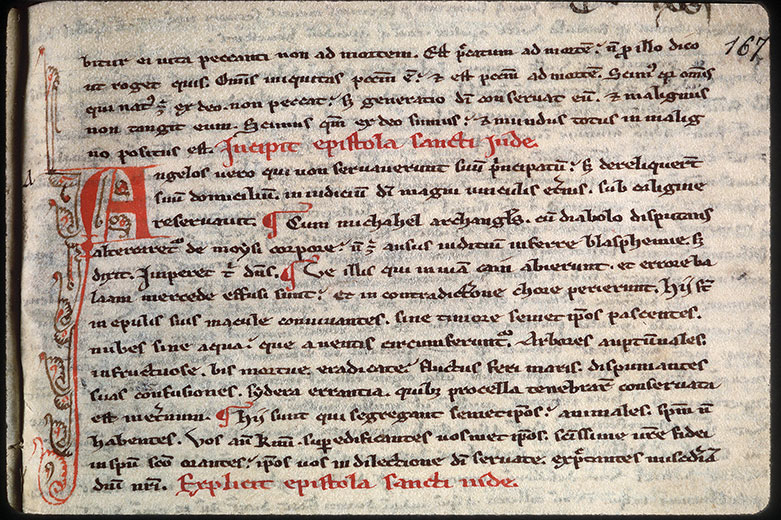 167
bitur ei uita peccanti non ad mortem. Est p̄catum ad morte᷒: n̄ ꝓ illo dico
ut roget quis. Om̄is iniquitas pecc̄m ē: & est pecc̄m ad morte᷒. Scim᷒ qꝛ om̄is
qui nat᷒ ꝫ ex deo. non peccat: sꝫ generatio dī conseruat eū. & malignus
non tangit eum. Scimus qm̄ ex deo simus: & mundus totus in malig
no positus est. Incipit epistola sancti iude.
A
Angelos uero qui non seruauerunt suū p̄ncipatū: sꝫ dereliquer̄t
suū domiciliū. in iudiciū dī magni uinculis et̄nis. sub caligine
reseruauit. ¶ Cum michahel archangl̄s. cū diabolo disputans
altercaret᷒ de moysi corpore: n̄ ꝫ ausus iuditiū inferre blasphemie. sꝫ
dixit. Imperet t̄ dn̄s. ¶ Ve illis qui in uiā cain abierunt. et errore ba
laam mercede effusi sunt: et in contradictione chore perierunt. Hij st̄
in epulis suis macule conuiuantes. sine timore semetip̄os pascentes.
nubes sine aqua: que a uentis circumferunt᷒. Arbores autūnales.
infructuose. bis mortue. eradicate: fluctus feri maris. dispumantes
suas confusiones. sydera errantia. quib᷒ procella tenebrar̄ conseruata
est in et̄num. ¶ Hij sunt qui segregant semetip̄os: animales. sp̄m n̄
habentes. Vos aū k̄mi. suꝑedificantes uosmet ip̄os. sc̄issime ur̄e fidei
in sp̄u sc̄o orantes: ip̄os uos in dilectione dī seruate. exp̄ctantes mis̄cdiā
dn̄i nr̄i. Explicit epistola sancti iude.